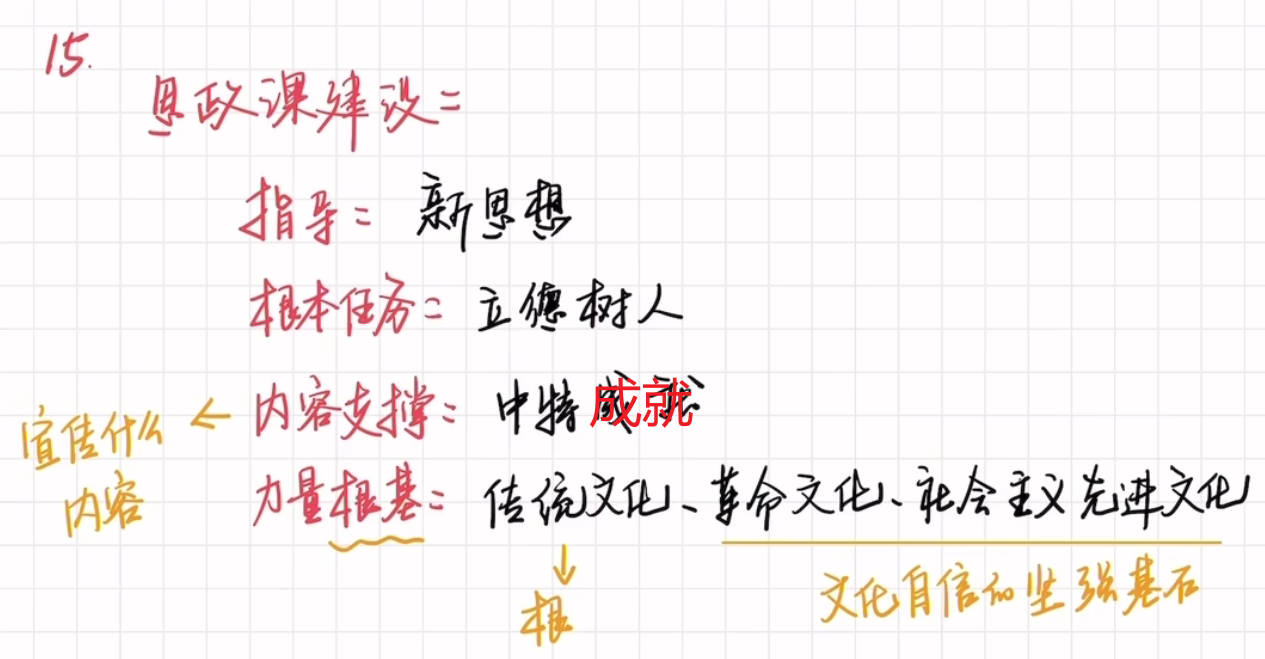 15.
思政课建设：
指导：新思想
根本任务：立德树人
宣传什么内容 ← 内容支撑：中特成就
力量根基：传统文化、革命文化、社会主义先进文化
↓
根
文化自信的坚强基石